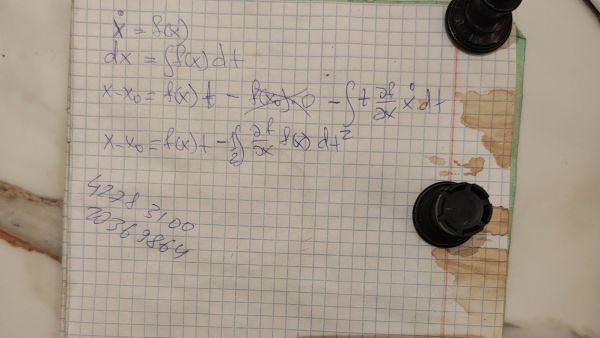 ẋ = f(x)
dx = ∫f(x)dt
x-x₀ = f(x)t - f(x₀)·0 - ∫t ∂f/∂x ẋ dt
x-x₀ = f(x)t - ∫ ∂f/∂x f(x) dt²
4278 3100
20369864